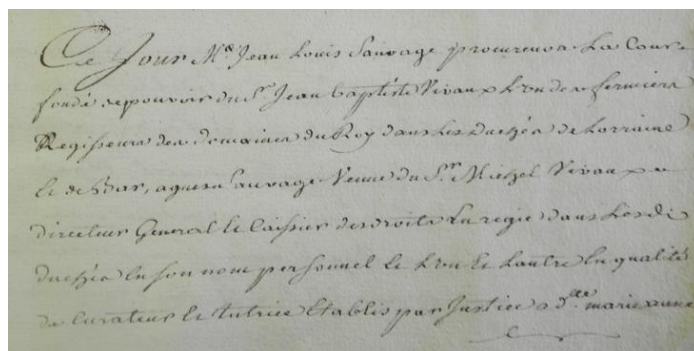 Ce Jour Me Jean Louis Sauvage procureur a La Cour
fondé de pouvoir du Sr Jean baptiste Vivaux L'un des fermiers
Regisseurs des domaines du Roy dans Les Duchés de Lorraine
Et de Bar, agnes Sauvage Veuve du Sr Michel Vivaux
directeur General Et Caissier des droits En regie dans Lesdi
duchés En son nom personnel Et L'un Et L'autre En qualité
de Curateur Et tutrice Etablis par Justice a dlle marie anne